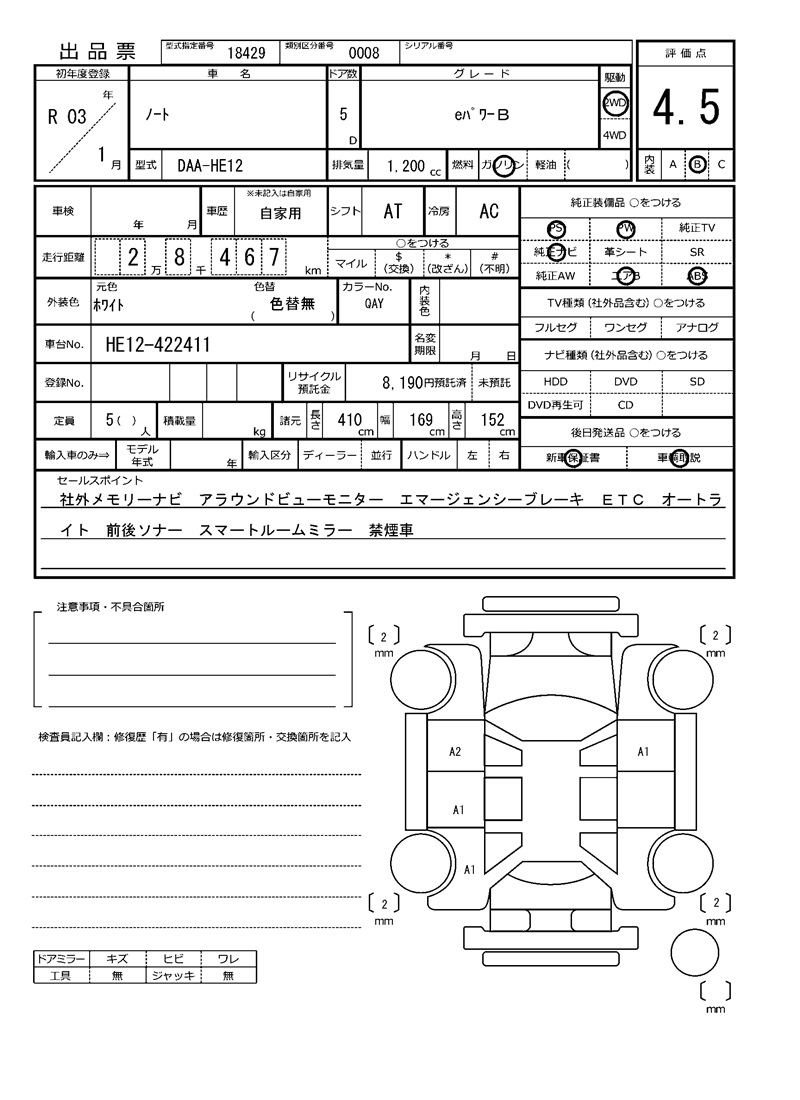 出品票 型式指定番号 18429 類別区分番号 0008 シリアル番号
評価点
4.5
内装 A B C
初年度登録 車名 ドア数 グレード 駆動
R 03 年 1 月 ノート 5 D eパワーB 2WD
4WD
型式 DAA-HE12 排気量 1,200 cc 燃料 ガソリン 軽油 ( )
車検 年 月 車歴 ※未記入は自家用 自家用 シフト AT 冷房 AC
走行距離 2 万 8 千 4 6 7 km
○をつける
マイル $(交換) *(改ざん) #(不明)
外装色 元色 ホワイト 色替 ( 色替無 ) カラーNo. QAY 内装色
車台No. HE12-422411 名変期限 月 日
登録No. リサイクル預託金 8,190円預託済 未預託
定員 5( )人 積載量 kg 諸元 長さ 410 cm 幅 169 cm 高さ 152 cm
輸入車のみ⇒ モデル年式 年 輸入区分 ディーラー 並行 ハンドル 左 右
純正装備品 ○をつける
PS PW 純正TV
純正ナビ 革シート SR
純正AW エアB ABS
TV種類(社外品含む)○をつける
フルセグ ワンセグ アナログ
ナビ種類(社外品含む)○をつける
HDD DVD SD
DVD再生可 CD
後日発送品 ○をつける
新車保証書 車輌取説
セールスポイント
社外メモリーナビ アラウンドビューモニター エマージェンシーブレーキ ETC オートラ
イト 前後ソナー スマートルームミラー 禁煙車
注意事項・不具合箇所
検査員記入欄:修復歴「有」の場合は修復箇所・交換箇所を記入
ドアミラー キズ ヒビ ワレ
工具 無 ジャッキ 無
2 mm
2 mm
A2 A1
A1
A1
2 mm
2 mm
mm